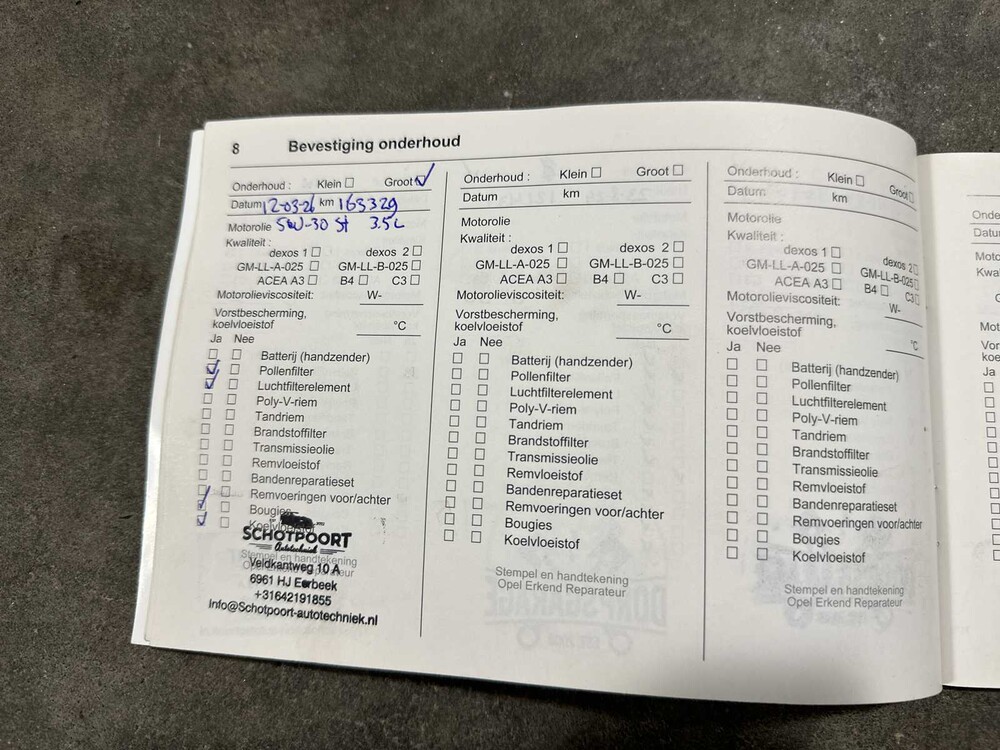 8 Bevestiging onderhoud
Onderhoud : Klein Groot
Datum 12-03-26 km 163329
Motorolie 5W-30 St 3.5L
Kwaliteit :
dexos 1 dexos 2
GM-LL-A-025 GM-LL-B-025
ACEA A3 B4 C3
Motorolieviscositeit: W-
Vorstbescherming,
koelvloeistof °C
Ja Nee
Batterij (handzender)
Pollenfilter
Luchtfilterelement
Poly-V-riem
Tandriem
Brandstoffilter
Transmissieolie
Remvloeistof
Bandenreparatieset
Remvoeringen voor/achter
Bougies
Koelvloeistof
SCHOTPOORT
Autotechniek
Stempel en handtekening
Opel Erkend Reparateur
Veldkantweg 10 A
6961 HJ Eerbeek
+31642191855
Info@Schotpoort-autotechniek.nl
Onderhoud : Klein Groot
Datum km
Motorolie
Kwaliteit :
dexos 1 dexos 2
GM-LL-A-025 GM-LL-B-025
ACEA A3 B4 C3
Motorolieviscositeit: W-
Vorstbescherming,
koelvloeistof °C
Ja Nee
Batterij (handzender)
Pollenfilter
Luchtfilterelement
Poly-V-riem
Tandriem
Brandstoffilter
Transmissieolie
Remvloeistof
Bandenreparatieset
Remvoeringen voor/achter
Bougies
Koelvloeistof
Stempel en handtekening
Opel Erkend Reparateur
Onderhoud : Klein Groot
Datum km
Motorolie
Kwaliteit :
dexos 1 dexos 2
GM-LL-A-025 GM-LL-B-025
ACEA A3 B4 C3
Motorolieviscositeit: W-
Vorstbescherming,
koelvloeistof °C
Ja Nee
Batterij (handzender)
Pollenfilter
Luchtfilterelement
Poly-V-riem
Tandriem
Brandstoffilter
Transmissieolie
Remvloeistof
Bandenreparatieset
Remvoeringen voor/achter
Bougies
Koelvloeistof
Stempel en handtekening
Opel Erkend Reparateur
Ja